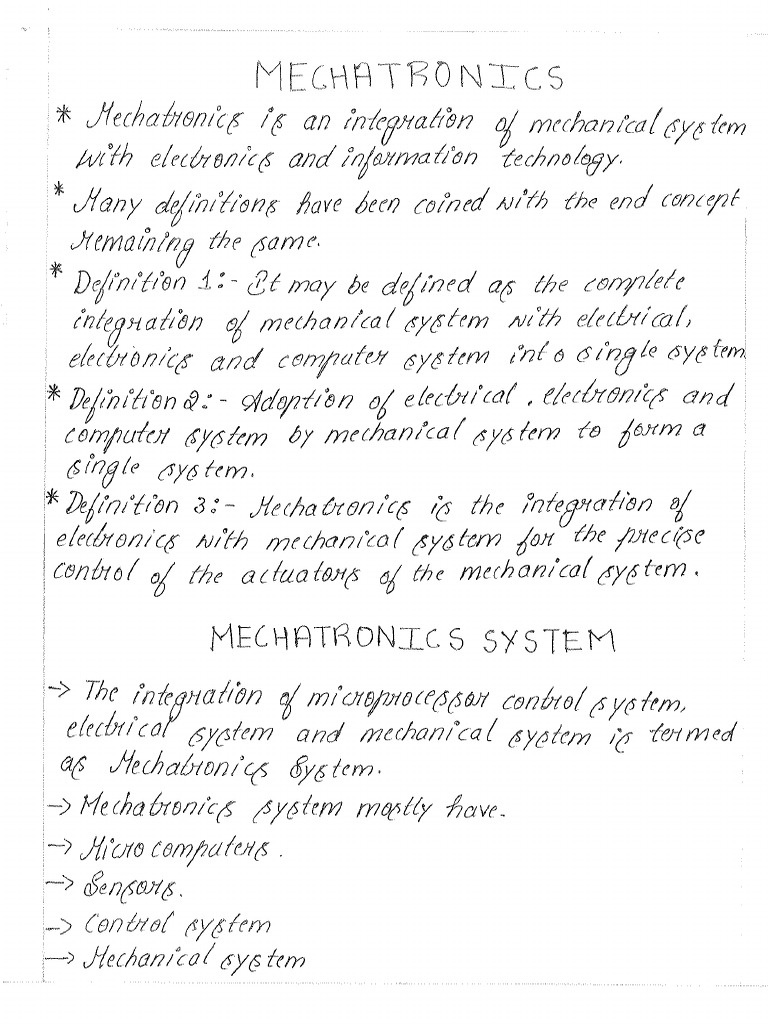 MECHATRONICS
* Mechatronics is an integration of mechanical system
with electronics and information technology.
* Many definitions have been coined with the end concept
remaining the same.
* Definition 1:- It may be defined as the complete
integration of mechanical system with electrical,
electronics and computer system into single system
* Definition 2:- Adoption of electrical, electronics and
computer system by mechanical system to form a
single system.
* Definition 3:- Mechatronics is the integration of
electronics with mechanical system for the precise
control of the actuators of the mechanical system.
MECHATRONICS SYSTEM
-> The integration of microprocessor control system,
electrical system and mechanical system is termed
as Mechatronics System.
-> Mechatronics system mostly have.
-> Micro computers.
-> Sensors.
-> Control system
-> Mechanical system